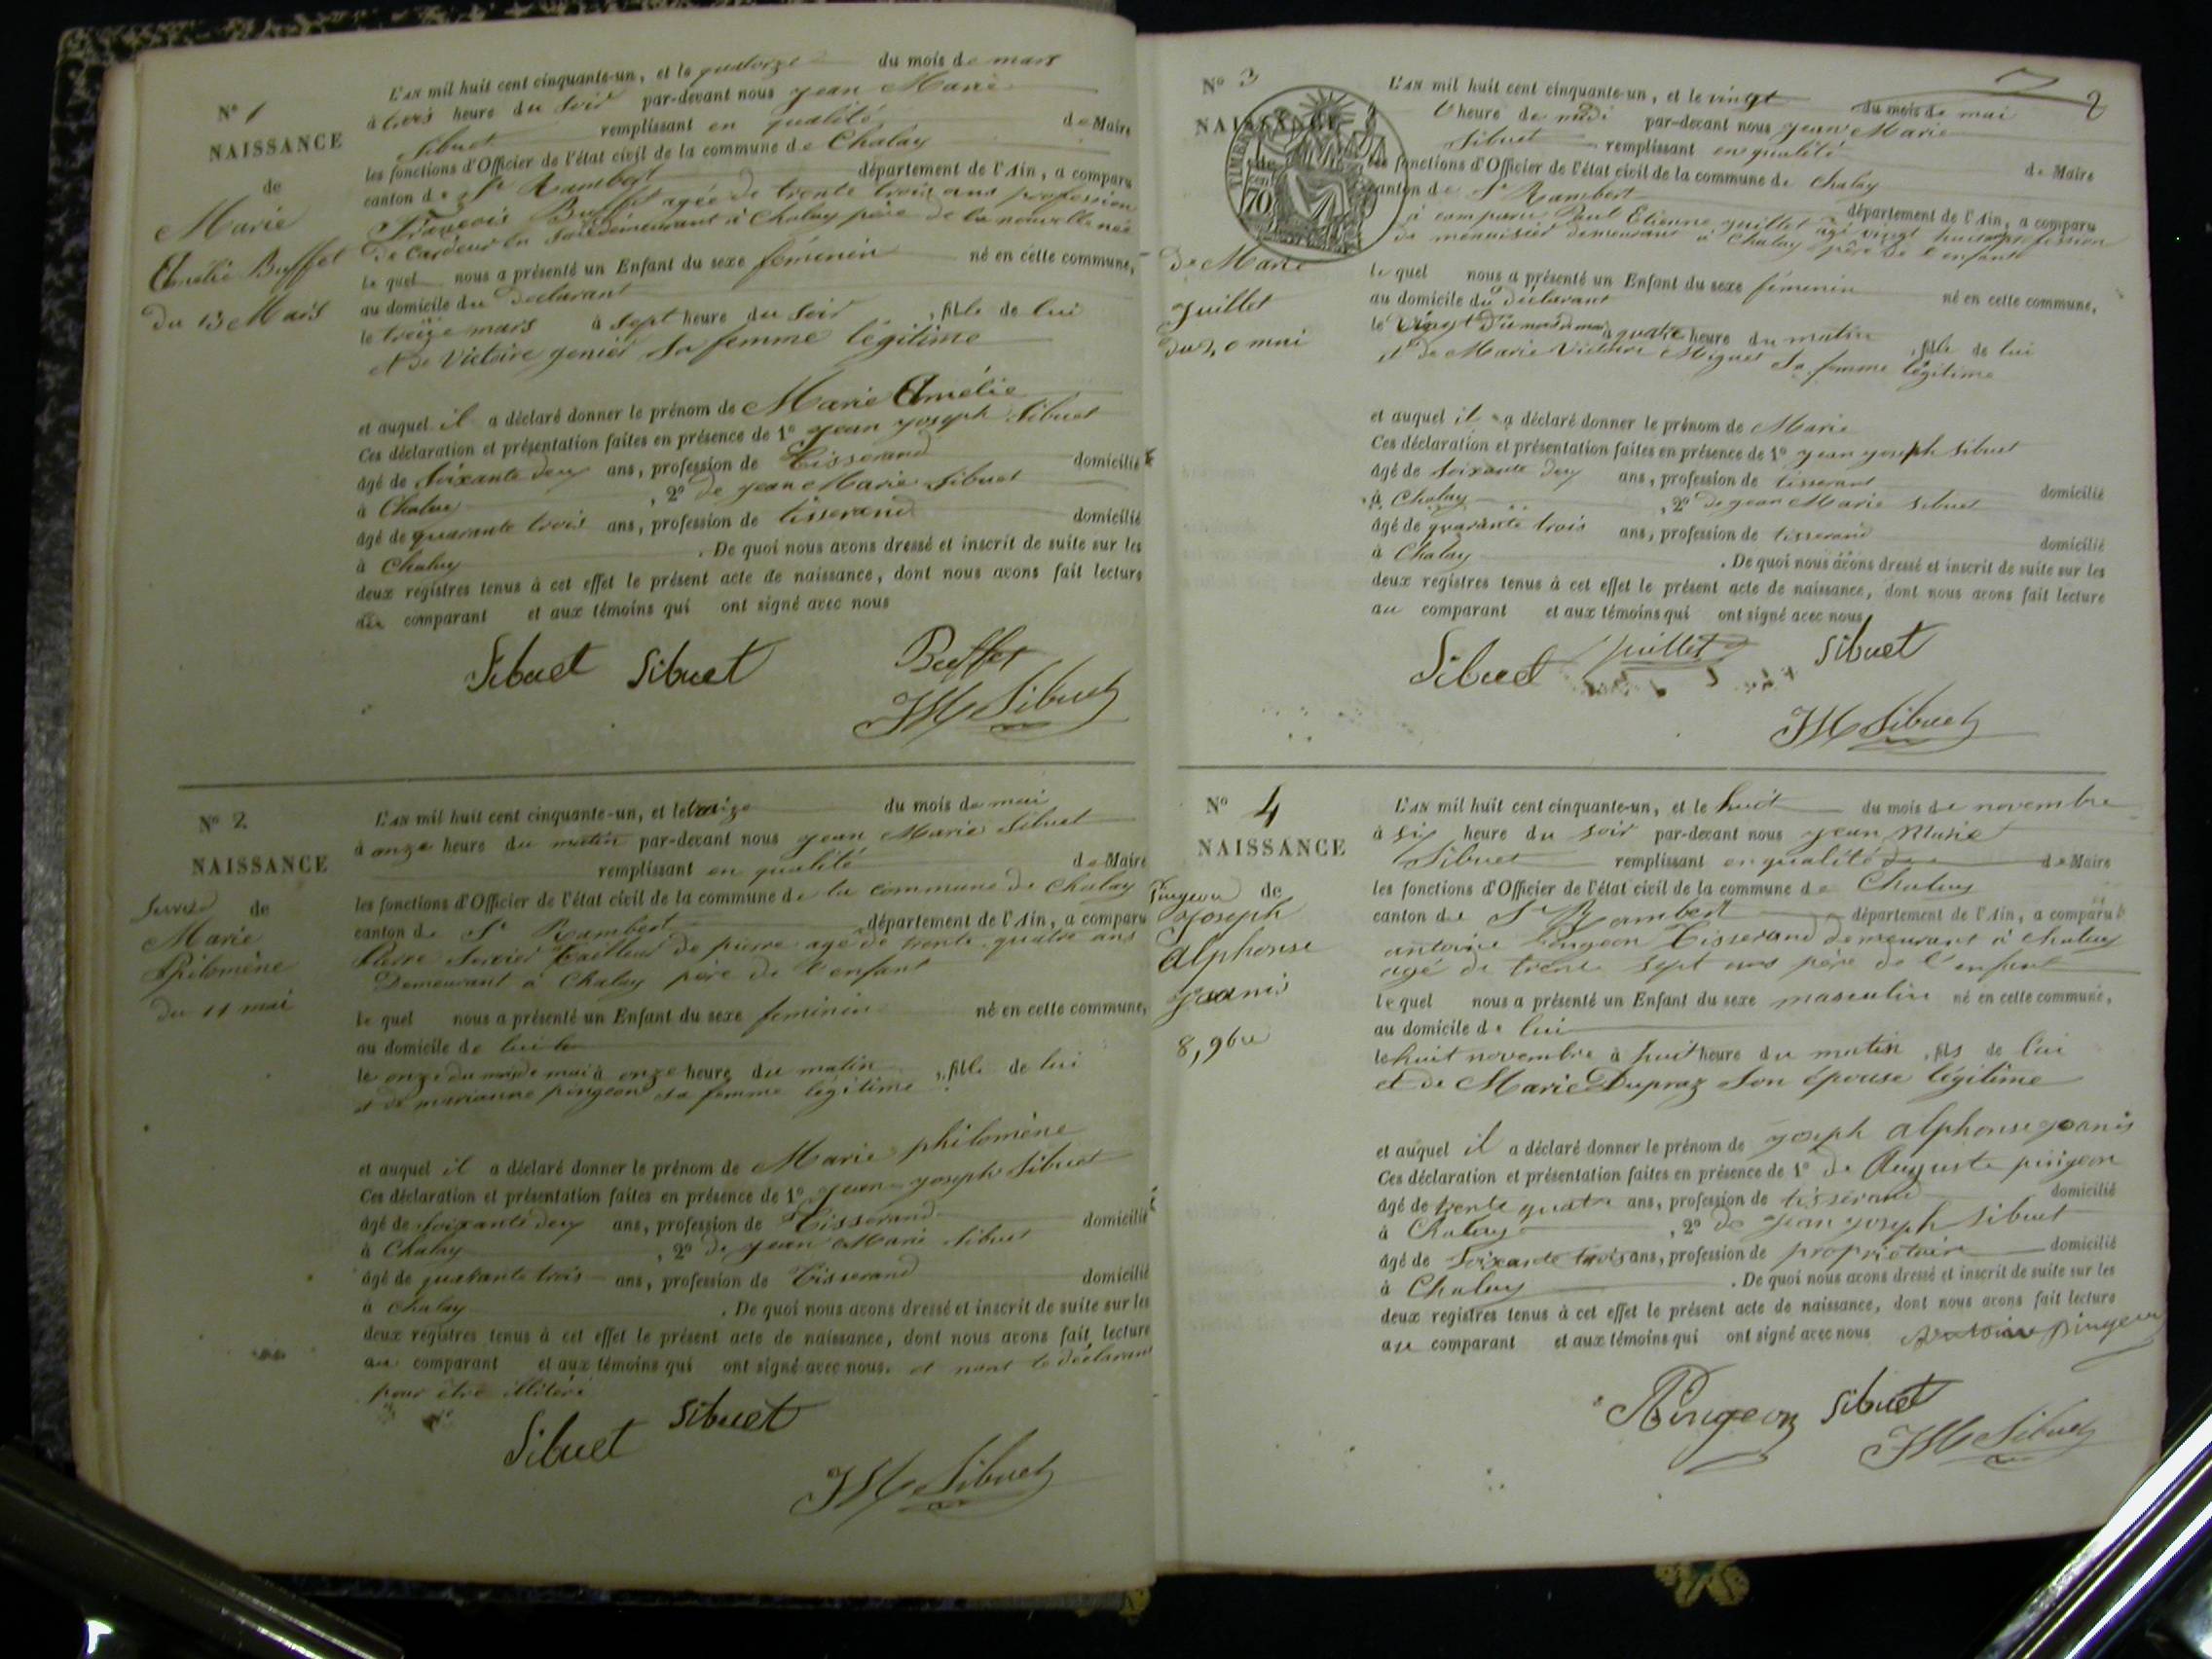 N° 1
NAISSANCE
de
Marie
Amélie Buffet
du 13 Mars
L'AN mil huit cent cinquante-un, et le quatorze du mois de mars
à trois heure du soir par-devant nous jean Marie
Sibuet remplissant en qualité de Maire
les fonctions d'Officier de l'état civil de la commune de Chalay
canton de St Rambert département de l'Ain, a comparu
François Buffet agée de trente trois ans profession
de Cardeur en soie demeurant à Chalay père de la nouvelle née
le quel nous a présenté un Enfant du sexe féminin né en cette commune,
au domicile du Déclarant
le treize mars à sept heure du soir, fille de lui
et de Victoire genier sa femme légitime
et auquel il a déclaré donner le prénom de Marie Amélie
Ces déclaration et présentation faites en présence de 1° jean joseph Sibuet
âgé de soixante deux ans, profession de Tisserand domicilié
à Chalay, 2° de jean Marie Sibuet
âgé de quarante trois ans, profession de tisserand domicilié
à Chalay. De quoi nous avons dressé et inscrit de suite sur les
deux registres tenus à cet effet le présent acte de naissance, dont nous avons fait lecture
au comparant et aux témoins qui ont signé avec nous
Sibuet Sibuet Buffet
JM Sibuet
N° 2
NAISSANCE
de
Marie
Philomène
du 11 mai
L'AN mil huit cent cinquante-un, et le treize du mois de mai
à onze heure du matin par-devant nous jean Marie Sibuet
remplissant en qualité de Maire
les fonctions d'Officier de l'état civil de la commune de la commune de Chalay
canton de St Rambert département de l'Ain, a comparu
Tailleur de pierre agé de trente quatre ans
Demeurant à Chalay père de l'enfant
le quel nous a présenté un Enfant du sexe féminin né en cette commune,
au domicile de lui
le onze du mois de mai à onze heure du matin, fille de lui
et de marianne pingeon sa femme légitime
et auquel il a déclaré donner le prénom de Marie philomène
Ces déclaration et présentation faites en présence de 1° jean joseph Sibuet
âgé de soixante deux ans, profession de Tisserand domicilié
à Chalay, 2° de jean Marie Sibuet
âgé de quarante trois ans, profession de Tisserand domicilié
à Chalay. De quoi nous avons dressé et inscrit de suite sur les
deux registres tenus à cet effet le présent acte de naissance, dont nous avons fait lecture
au comparant et aux témoins qui ont signé avec nous. et nont le déclarant
pour être illitéré
Sibuet Sibuet
JM Sibuet
2
N° 3
NAISSANCE
TIMBRE
70
de Marie
juillet
du 20 mai
L'AN mil huit cent cinquante-un, et le vingt du mois de mai
heure de midi par-devant nous jean Marie
Sibuet remplissant en qualité de Maire
les fonctions d'Officier de l'état civil de la commune de Chalay
canton de St Rambert département de l'Ain, a comparu
à comparu Paul Etienne juillet agé vingt profession
de menuisier demeurant à Chalay père de l'enfant
le quel nous a présenté un Enfant du sexe féminin né en cette commune,
au domicile du déclarant
le vingt du mois de mai à quatre heure du matin, fille de lui
et de Marie Victoire sa femme légitime
et auquel il a déclaré donner le prénom de Marie
Ces déclaration et présentation faites en présence de 1° jean joseph Sibuet
âgé de soixante deux ans, profession de tisserant domicilié
à Chalay, 2° de jean Marie Sibuet
âgé de quarante trois ans, profession de tisserand domicilié
à Chalay. De quoi nous avons dressé et inscrit de suite sur les
deux registres tenus à cet effet le présent acte de naissance, dont nous avons fait lecture
au comparant et aux témoins qui ont signé avec nous
Sibuet juillet Sibuet
JM Sibuet
N° 4
NAISSANCE
Pingeon de
Joseph
Alphonse
Joanis
8, 9bre
L'AN mil huit cent cinquante-un, et le huit du mois de novembre
à six heure du soir par-devant nous jean Marie
Sibuet remplissant en qualité de de Maire
les fonctions d'Officier de l'état civil de la commune de Chalay
canton de St Rambert département de l'Ain, a comparu
antoine Pingeon Tisserand demeurant à Chalay
agé de trente sept ans père de l'enfant
lequel nous a présenté un Enfant du sexe masculin né en cette commune,
au domicile de lui
le huit novembre à huit heure du matin, fils de lui
et de Marie Dupraz son épouse légitime
et auquel il a déclaré donner le prénom de joseph alphonse joanis
Ces déclaration et présentation faites en présence de 1° de Auguste pingeon
âgé de trente quatre ans, profession de tisserand domicilié
à Chalay, 2° de jean joseph Sibuet
âgé de soixante trois ans, profession de propriétaire domicilié
à Chalay. De quoi nous avons dressé et inscrit de suite sur les
deux registres tenus à cet effet le présent acte de naissance, dont nous avons fait lecture
au comparant et aux témoins qui ont signé avec nous Antoine pingeon
Pingeon Sibuet
JM Sibuet